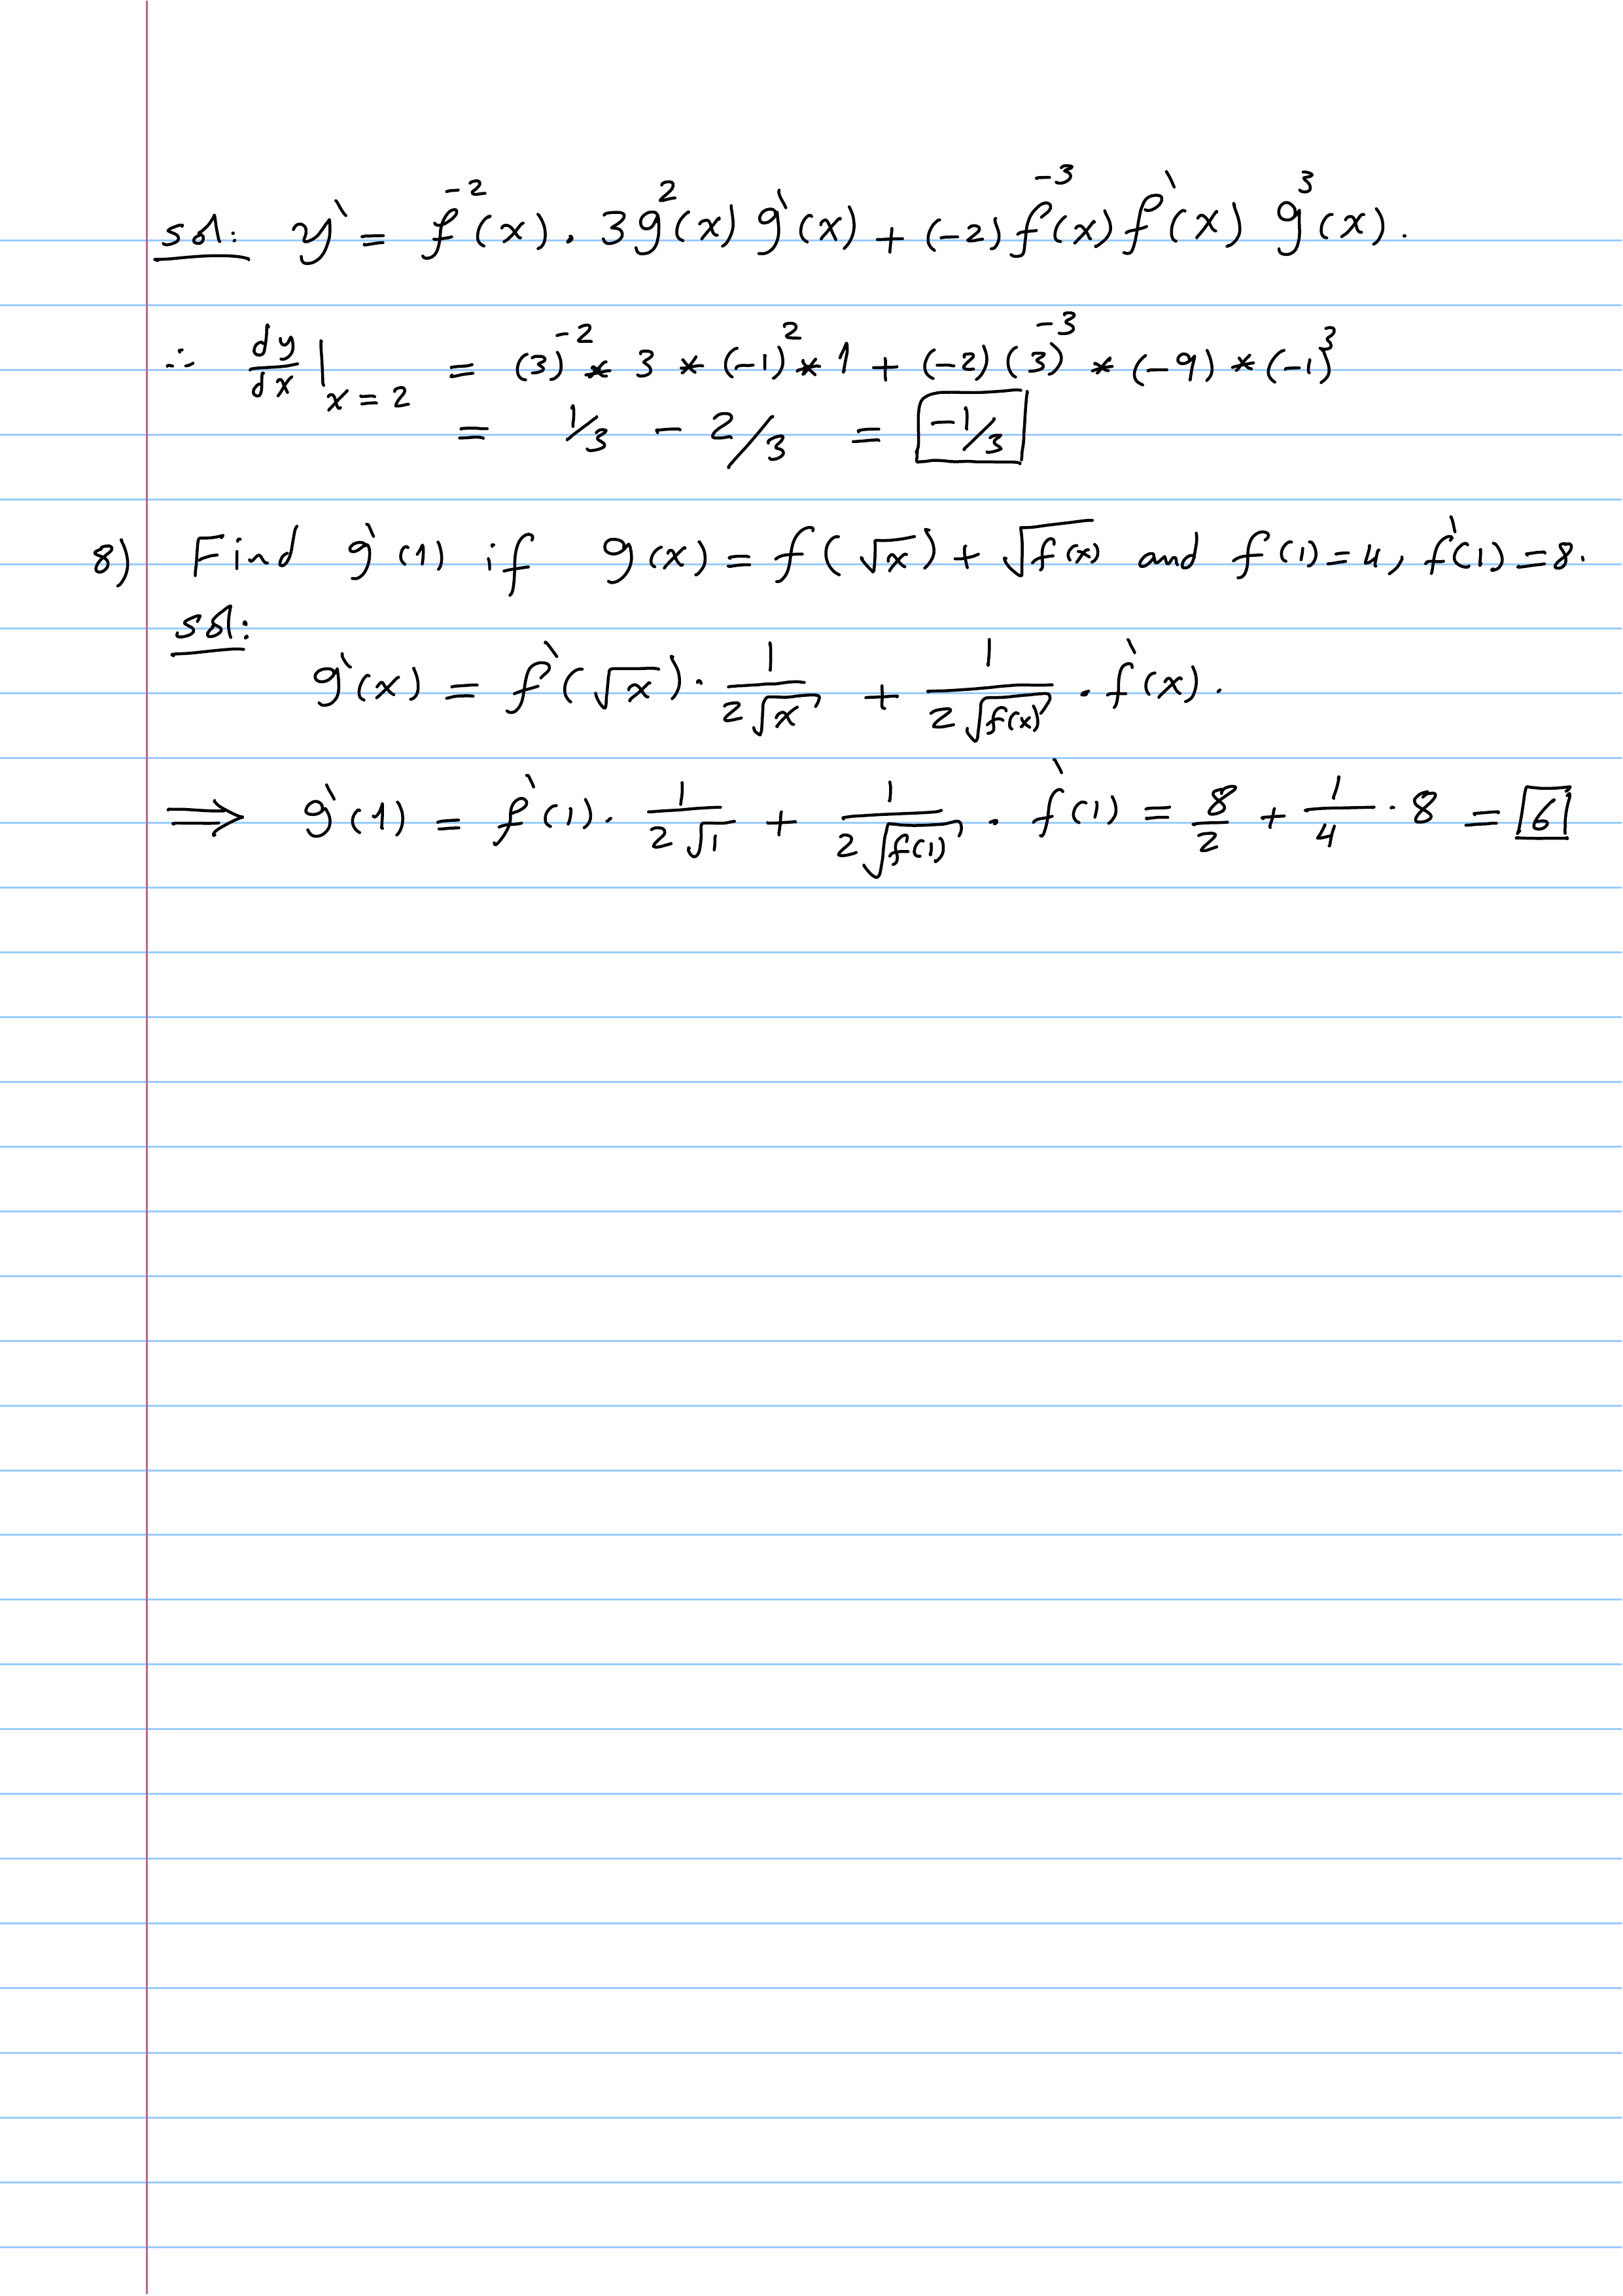 sol: y` = f⁻²(x) . 3g²(x) g`(x) + (-2) f⁻³(x) f`(x) g³(x) .
∴ dy/dx |ₓ₌₂ = (3)⁻² * 3 * (-1)² * 1 + (-2) (3)⁻³ * (-9) * (-1)³
= 1/3 - 2/3 = -1/3
8) Find g`(1) if g(x) = f(√x) + √f(x) and f(1)=4, f`(1)=8.
sol:
g`(x) = f`(√x) . 1/(2√x) + 1/(2√f(x)) . f`(x) .
⟹ g`(1) = f`(1) . 1/(2√1) + 1/(2√f(1)) . f`(1) = 8/2 + 1/4 . 8 = 6